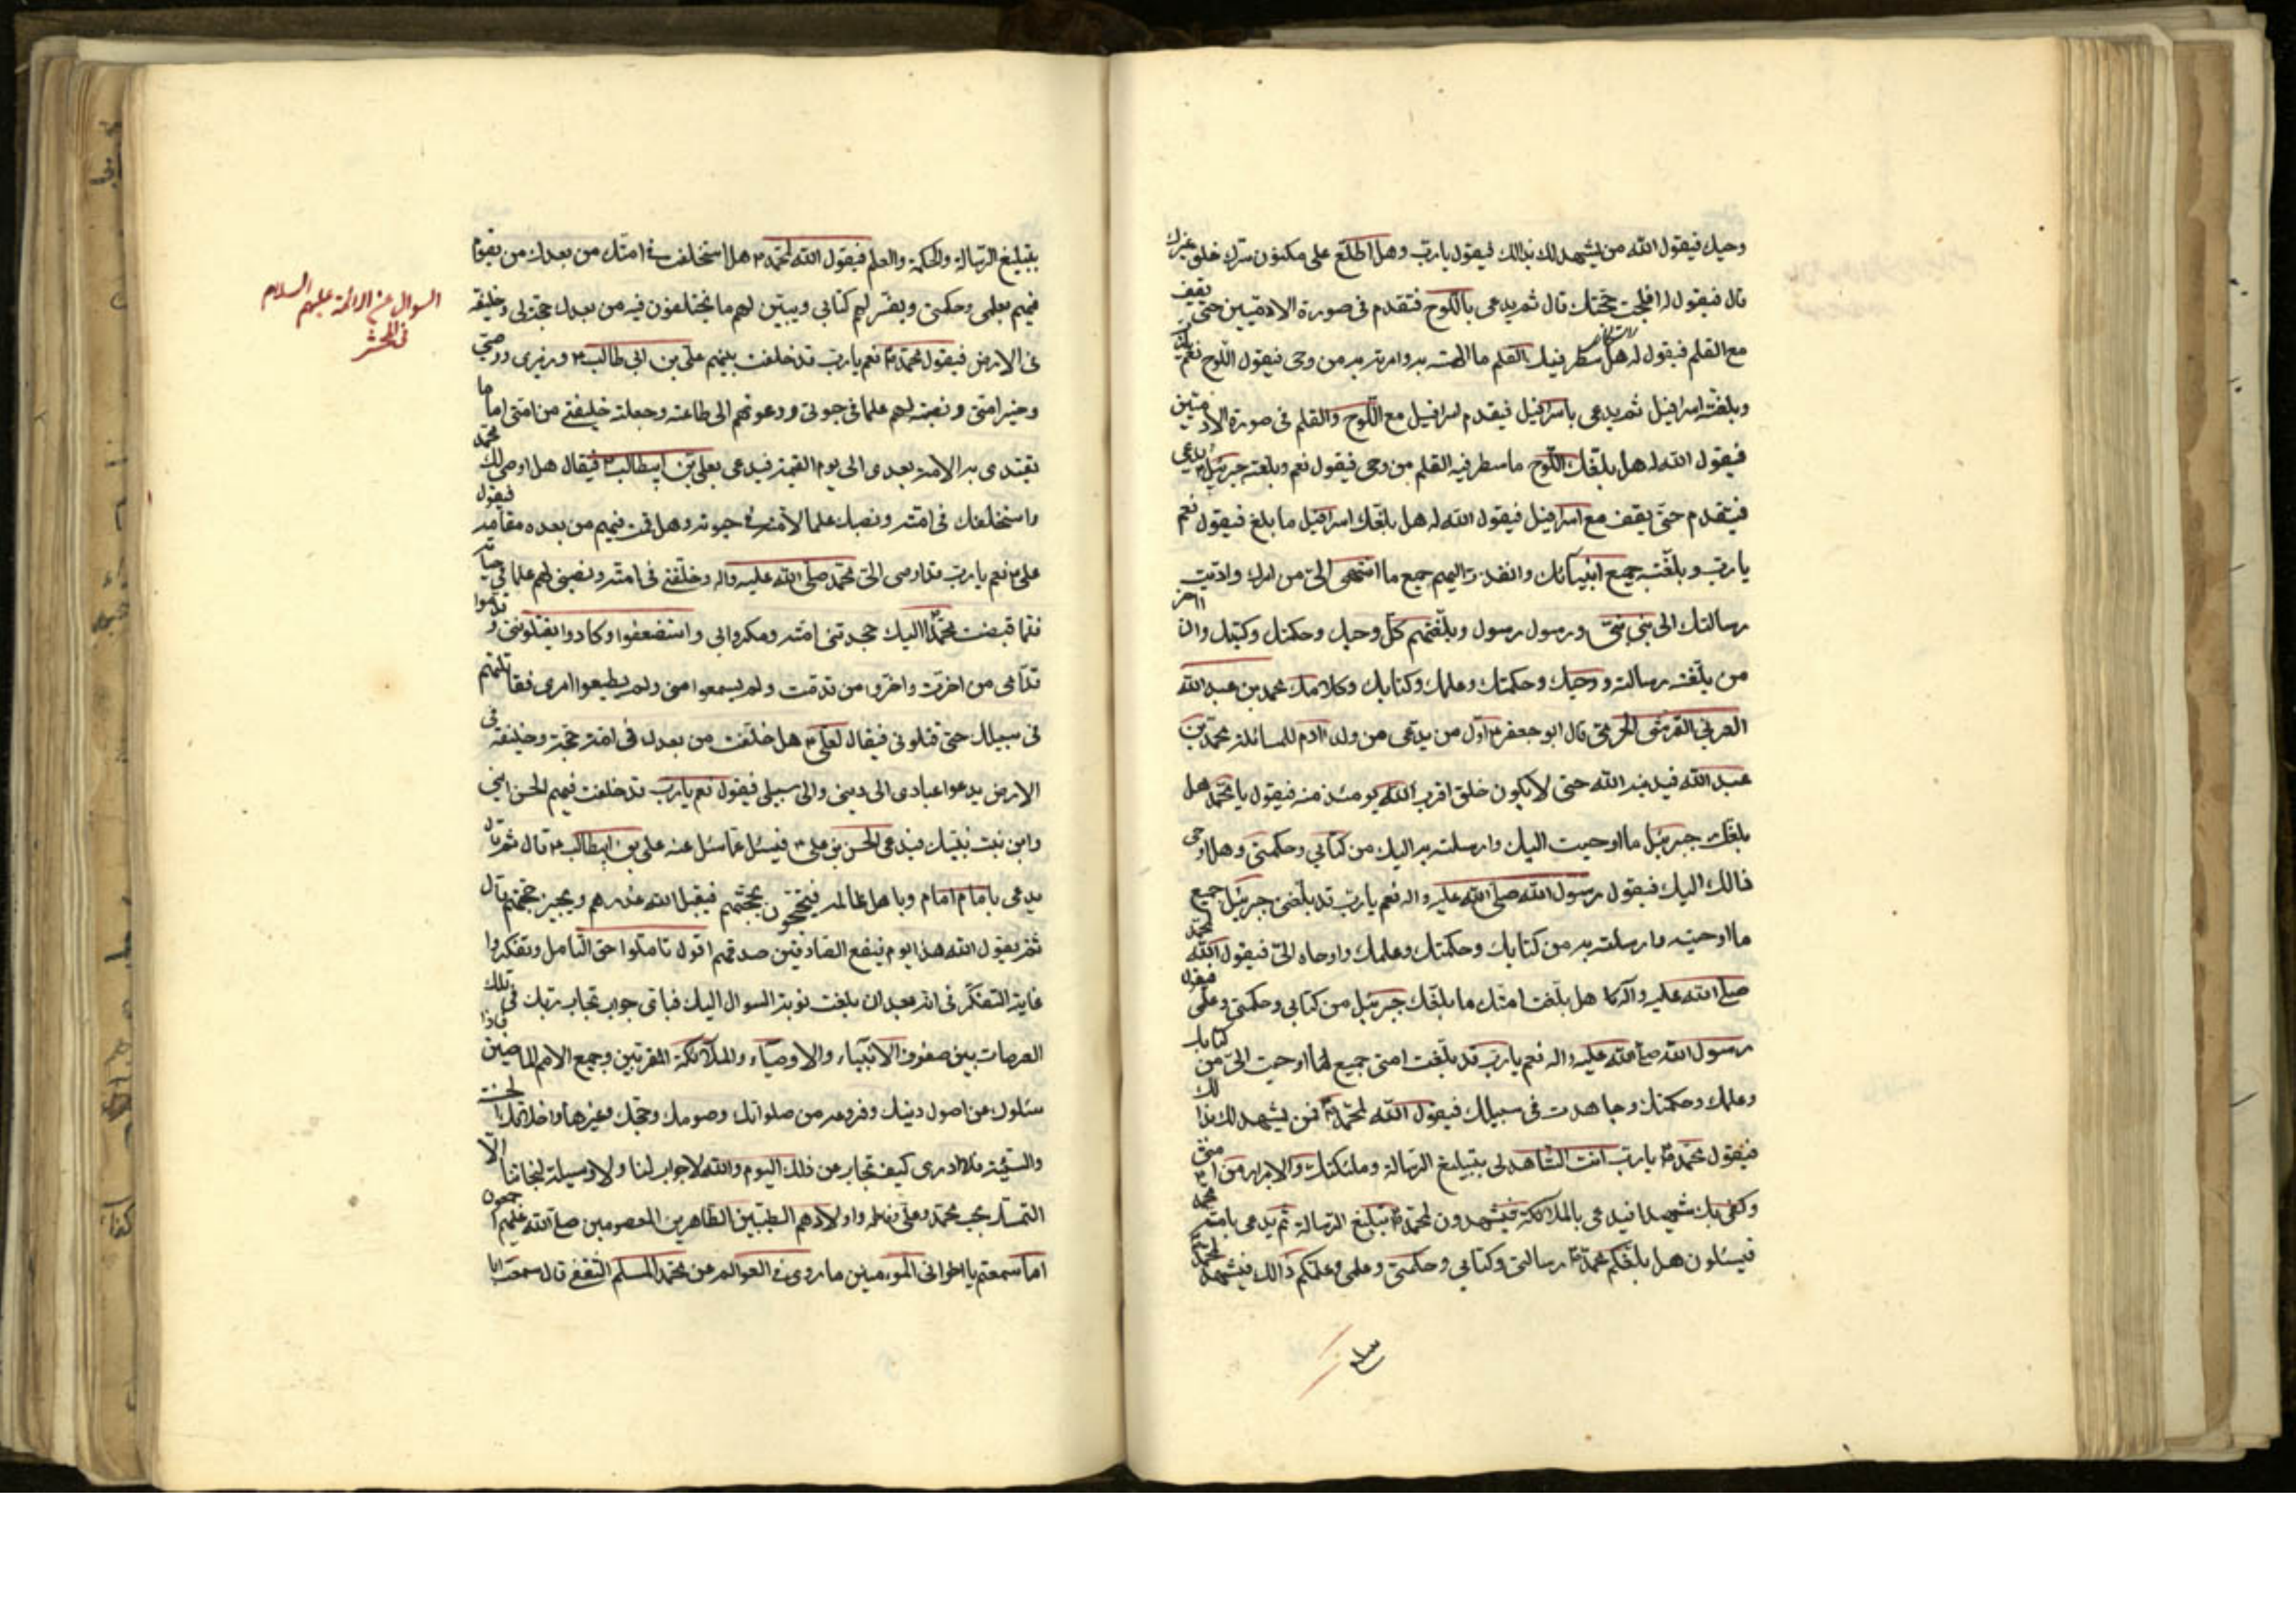 وحيك فيقول الله من يشهد لك بذالك فيقول يا رب وهل اطلع على مكنون سرك خلق غيرك
قال فيقول له افلجت حجتك قال ثم يدعى باللوح فتقدم فى صورة الادميين حتى يقف
مع القلم فيقول له هل سطر فيك القلم ما الهمته به وامرته به من وحى فيقول اللوح نعم يا رب
وبلغته اسرافيل ثم يدعى باسرافيل فيقدم اسرافيل مع اللوح والقلم فى صورة الادميين
فيقول الله له هل بلغك اللوح ما سطر فيه القلم من وحى فيقول نعم وبلغته جبرئيل ثم يدعى
فيتقدم حتى يقف مع اسرافيل فيقول الله له هل بلغك اسرافيل ما بلغ فيقول نعم
يا رب وبلغته جميع انبيائك وانفذت اليهم جميع ما انتهى الى من امرك واديت
رسالتك الى نبى نبى ورسول رسول وبلغتهم كل وحيك وحكمتك وكتبك وان اخر
من بلغته رسالته ووحيك وحكمتك وعلمك وكتابك وكلامك محمد بن عبد الله
العربى القرشى الحرمى قال ابو جعفر ع اول من يدعى من ولد ادم للمسائلة محمد بن
عبد الله فيدنيه الله حتى لا يكون خلق اقرب الله يومئذ منه فيقول يا محمد هل
بلغك جبرئيل ما اوحيت اليك وارسلته به اليك من كتابى وحكمتى وهل اوحى
ذالك اليك فيقول رسول الله صلى الله عليه واله نعم يا رب قد بلغنى جبرئيل جميع
ما اوحيته وارسلته به من كتابك وحكمتك وعلمك واوحاه الى فيقول الله لمحمد
صلى الله عليه واله هل بلغت امتك ما بلغك جبرئيل من كتابى وحكمتى وعلمى فيقول
رسول الله صلى الله عليه واله نعم يا رب قد بلغت امتى جميع ما اوحيت الى من كتابك
وعلمك وحكمتك وجاهدت فى سبيلك فيقول الله لمحمد فمن يشهد لك بذالك
فيقول محمد يا رب انت الشاهد لى بتبليغ الرسالة وملئكتك والابرار من امتى
وكفى بك شهيدا فيدعى بالملائكة فيشهدون لمحمد بتبليغ الرسالة ثم يدعى بامة محمد
فيسئلون هل بلغكم محمد رسالتى وكتابى وحكمتى وعلمى وعلمكم ذالك فيشهدون لمحمد
بتبليغ الرسالة والحكمة والعلم فيقول الله لمحمد هل استخلفت فى امتك من بعدك من يقوم
فيهم بعلمى وحكمتى ويفسر لهم كتابى ويبين لهم ما يختلفون فيه من بعدك حجة لى وخليفة
فى الارض فيقول محمد نعم يا رب قد خلفت بينهم على بن ابى طالب ووزيرى ووصيى
وخير امتى ونصبته لهم علما فى حيوتى ودعوتهم الى طاعته وجعلته خليفتى من امتى اماما
يقتدى به الامة بعدى الى يوم القيمة فيدعى بعلى بن ابيطالب فيقال هل اوصى لك محمد
واستخلفك فى امته ونصبك علما لامته فى حيوته وهل قمت فيهم من بعده مقامه فيقول
على نعم يا رب قد اوصى الى محمد صلى الله عليه واله وخلفنى فى امته ونصبنى لهم علما فى حياته
فلما قبضت محمدا اليك جحدتنى امته ومكروا بى واستضعفوا وكادوا يقتلوننى وقدموا
قدامى من اخرت واخروا من قدمت ولم يسمعوا منى ولم يطيعوا امرى فقاتلتهم
فى سبيلك حتى قتلونى فيقال لعلى هل خلفت من بعدك فى امة حجة وخليفة فى
الارض يدعوا عبادى الى دينى والى سبيلى فيقول نعم يا رب قد خلفت فيهم الحسن ابنى
وابن بنت نبيك فيدعى الحسن بن على فيسئل عما سئل عنه على بن ابيطالب قال ثم قال
يدعى بامام امام وباهل عالمه فيحتجون بحجتهم فيقبل الله عذرهم ويجيز حجتهم قال
ثم يقول الله هذا يوم ينفع الصادقين صدقهم اقول تاملوا حق التامل وتفكروا
غاية التفكر فى انه بعد ان بلغت نوبة السوال اليك فباى جواب تجاب ربك فى تلك
العرصات بين صفوف الانبياء والاوصياء والملائكة المقربين وجميع الامم الماضين فاذا
سئلوك عن اصول دينك وفروعه من صلواتك وصومك وحجك وغيرها واخلاقك الحسنة
والسيئة فلا ادرى كيف تجاب عن ذلك اليوم والله لا جواب لنا ولا وسيلة لنجاتنا الا
التمسك بحب محمد وعلى وفاطمة واولادهم الطيبين الطاهرين المعصومين صلى الله عليهم اجمعين
اما سمعتم يا اخوانى المؤمنين ما روى فى العوالم عن محمد المسلم الثقفى قال سمعت ابا
السوال عن الائمة عليهم السلام
فى المحشر